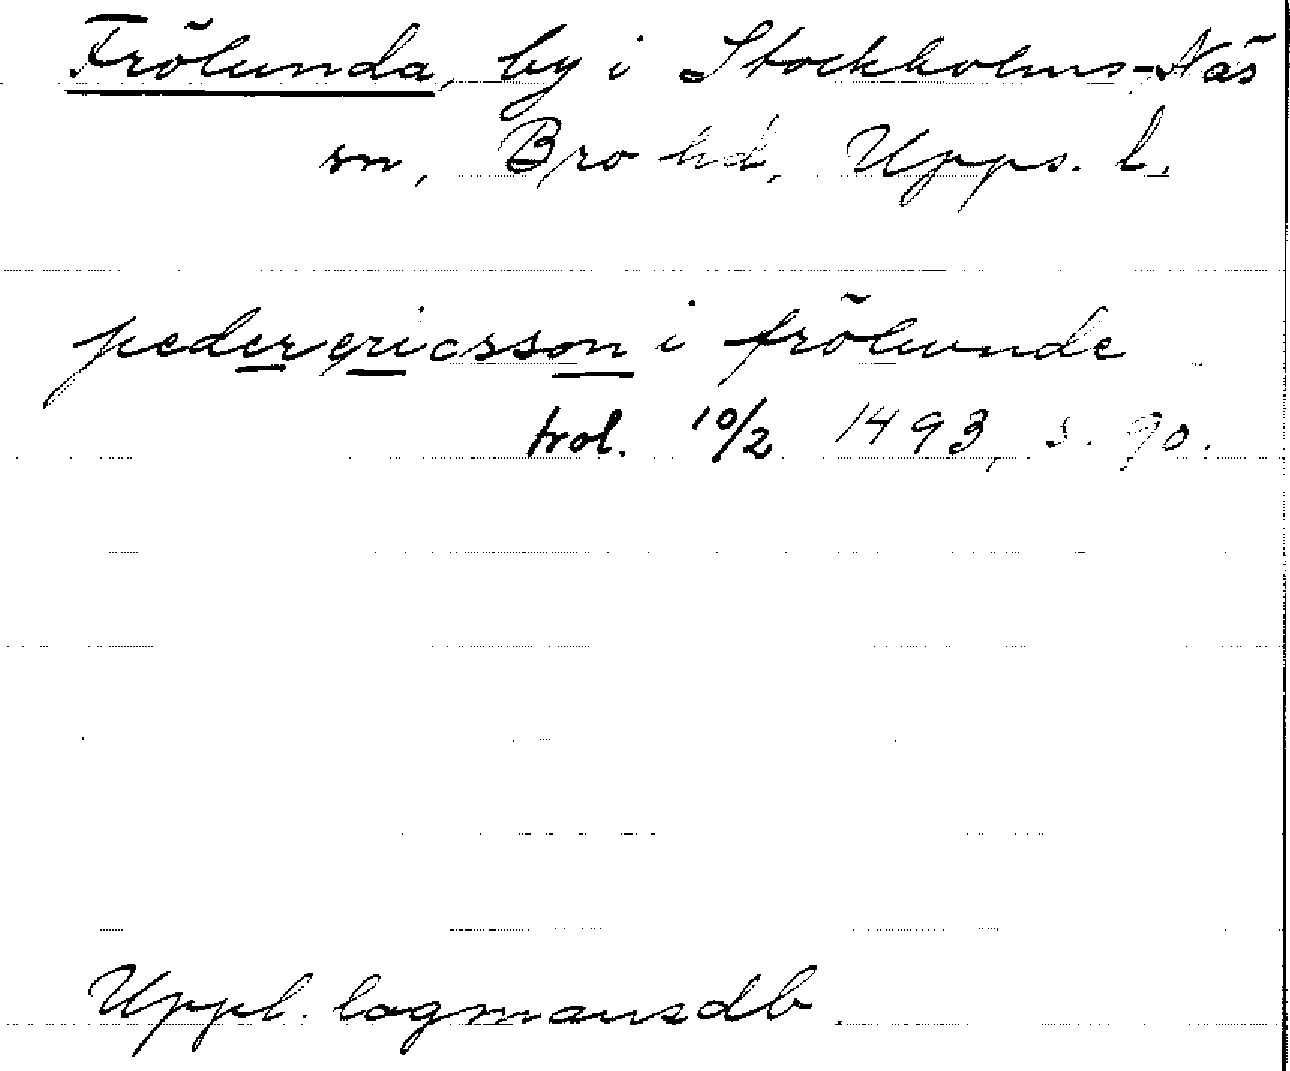 Frölunda, by i Stockholms-Näs
sn, Bro hd, Upps. l.
peder ericsson i frölunde
trol. 10/2 1493, s. 90.
Uppl. lagmansdb.